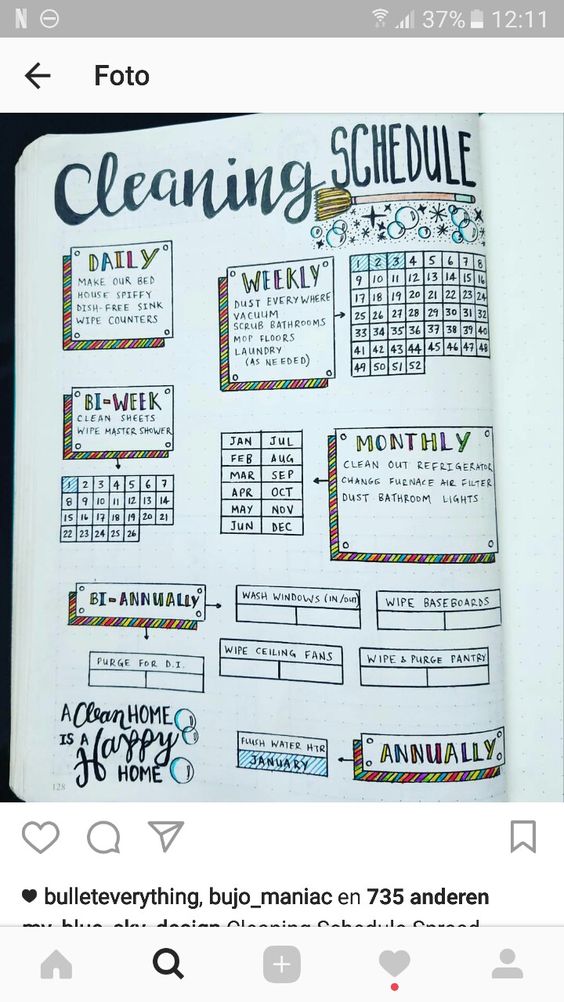 N 37% 12:11
Foto
Cleaning SCHEDULE
DAILY
MAKE OUR BED
HOUSE SPIFFY
DISH-FREE SINK
WIPE COUNTERS
WEEKLY
DUST EVERYWHERE
VACUUM
SCRUB BATHROOMS
MOP FLOORS
LAUNDRY
(AS NEEDED)
1 2 3 4 5 6 7 8
9 10 11 12 13 14 15 16
17 18 19 20 21 22 23 24
25 26 27 28 29 30 31 32
33 34 35 36 37 38 39 40
41 42 43 44 45 46 47 48
49 50 51 52
BI-WEEK
CLEAN SHEETS
WIPE MASTER SHOWER
1 2 3 4 5 6 7
8 9 10 11 12 13 14
15 16 17 18 19 20 21
22 23 24 25 26
JAN JUL
FEB AUG
MAR SEP
APR OCT
MAY NOV
JUN DEC
MONTHLY
CLEAN OUT REFRIGERATOR
CHANGE FURNACE AIR FILTER
DUST BATHROOM LIGHTS
BI-ANNUALLY
WASH WINDOWS (IN/OUT)
WIPE BASEBOARDS
PURGE FOR D.I.
WIPE CEILING FANS
WIPE & PURGE PANTRY
A Clean HOME
IS A Happy
HOME
FLUSH WATER HTR
JANUARY
ANNUALLY
128
bulleteverything, bujo_maniac en 735 anderen
my_blue_sky_design Cleaning Schedule Spread